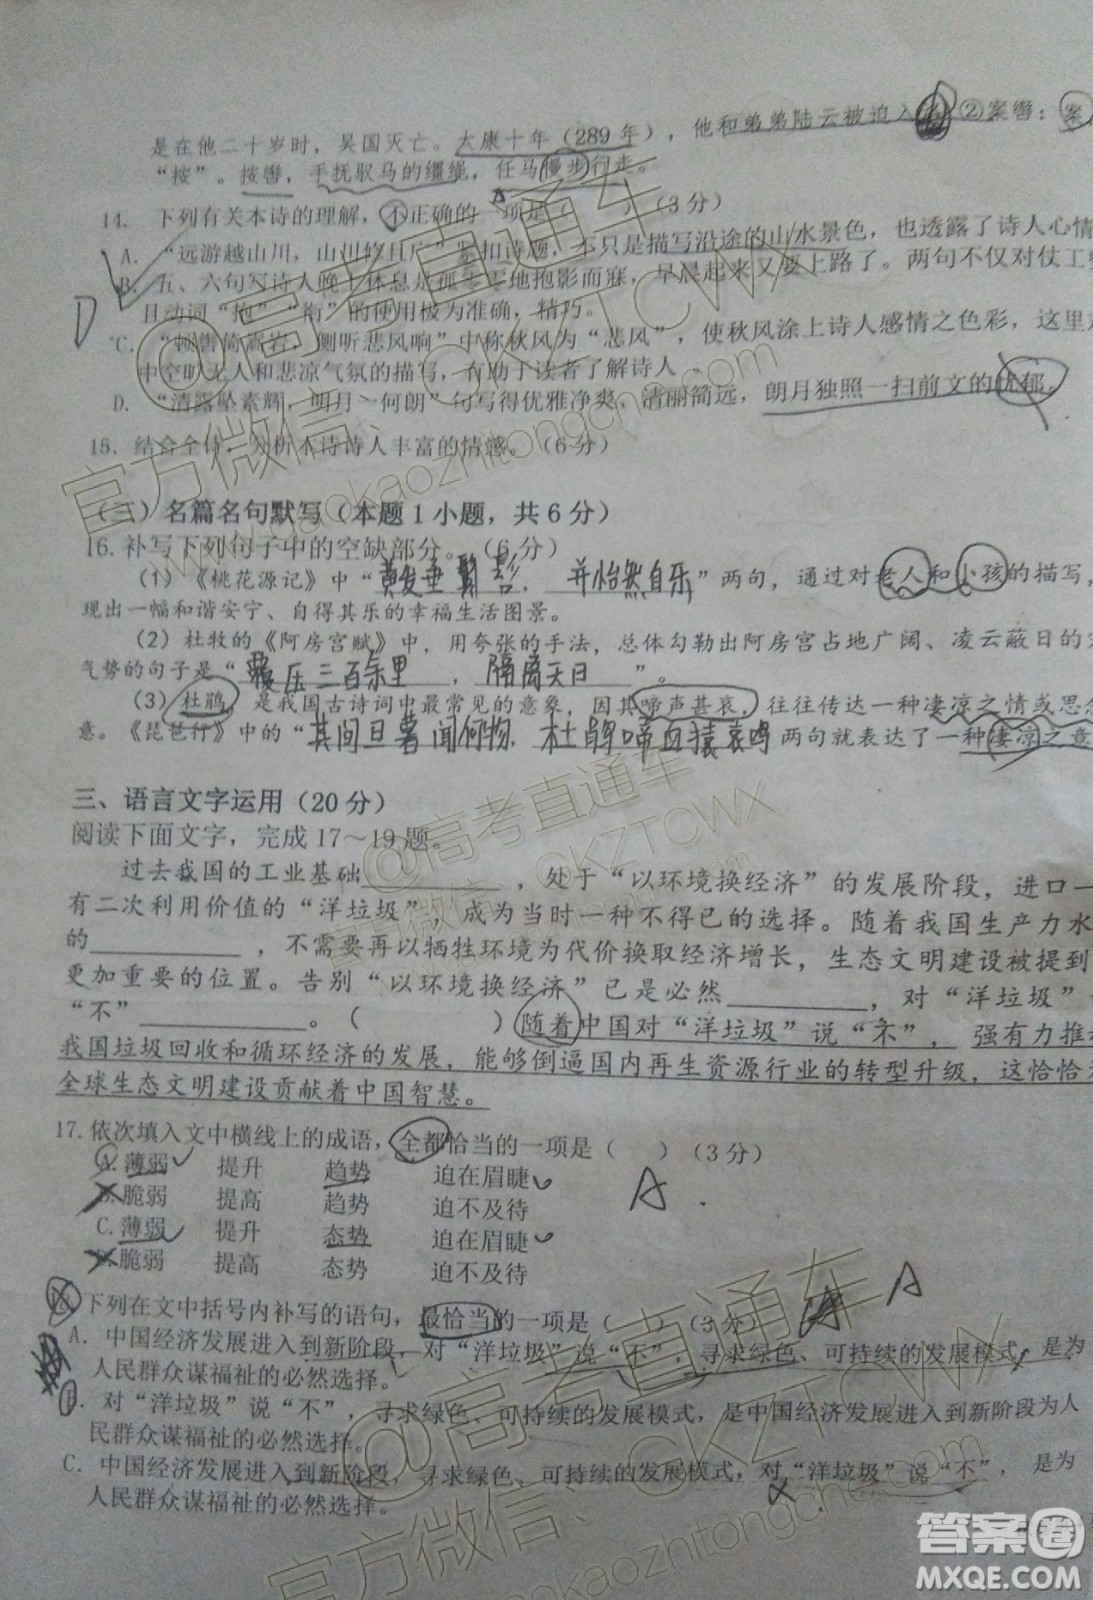 是在他二十岁时，吴国灭亡。太康十年（289年），他和弟弟陆云被迫入 ②案辔：案
“按”。按辔，手抚驭马的缰绳，任马慢步行走。
14. 下列有关本诗的理解，不正确的一项是（ ）（3分）
A. “远游越山川，山川 ”紧扣诗题，不只是描写沿途的山水景色，也透露了诗人心情
B. 五、六句写诗人晚上休息是孤 地抱影而寐，早晨起来又要上路了。两句不仅对仗工整
且动词“抱”“衔”的使用极为准确，精巧。
C. “顿辔倚嵩岩，侧听悲风响”中称秋风为“悲风”，使秋风涂上诗人感情之色彩，这里对
中空旷无人和悲凉气氛的描写，有助于读者了解诗人
D. “清露坠素辉，明月一何朗”句写得优雅净爽、清丽简远，朗月独照一扫前文的忧郁。
15. 结合全诗，分析本诗诗人丰富的情感。（6分）
（三）名篇名句默写（本题1小题，共6分）
16. 补写下列句子中的空缺部分。（6分）
（1）《桃花源记》中“黄发垂髫 ，并怡然自乐”两句，通过对老人和小孩的描写，
现出一幅和谐安宁、自得其乐的幸福生活图景。
（2）杜牧的《阿房宫赋》中，用夸张的手法，总体勾勒出阿房宫占地广阔、凌云蔽日的宏
气势的句子是“覆压三百余里，隔离天日”。
（3）杜鹃，是我国古诗词中最常见的意象，因其啼声甚哀，往往传达一种凄凉之情或思念
意。《琵琶行》中的“其间旦暮闻何物，杜鹃啼血猿哀鸣 两句就表达了一种凄凉之意
三、语言文字运用（20分）
阅读下面文字，完成17～19题。
过去我国的工业基础________，处于“以环境换经济”的发展阶段，进口一
有二次利用价值的“洋垃圾”，成为当时一种不得已的选择。随着我国生产力水
的________，不需要再以牺牲环境为代价换取经济增长，生态文明建设被提到
更加重要的位置。告别“以环境换经济”已是必然________，对“洋垃圾”
“不”________。（ ）随着中国对“洋垃圾”说“不”，强有力推动
我国垃圾回收和循环经济的发展，能够倒逼国内再生资源行业的转型升级，这恰恰为
全球生态文明建设贡献着中国智慧。
17. 依次填入文中横线上的成语，全都恰当的一项是（ ）（3分）
A. 薄弱 提升 趋势 迫在眉睫
B. 脆弱 提高 趋势 迫不及待 A.
C. 薄弱 提升 态势 迫在眉睫
D. 脆弱 提高 态势 迫不及待
下列在文中括号内补写的语句，最恰当的一项是（ ）（3分） A
A. 中国经济发展进入到新阶段，对“洋垃圾”说“不”，寻求绿色、可持续的发展模式，是为
人民群众谋福祉的必然选择。
B. 对“洋垃圾”说“不”，寻求绿色、可持续的发展模式，是中国经济发展进入到新阶段为人
民群众谋福祉的必然选择。
C. 中国经济发展进入到新阶段，寻求绿色、可持续的发展模式，对“洋垃圾”说“不”，是为
人民群众谋福祉的必然选择。
D
@高考直通车
官方微信：GKZTCWX
www.gaokaozhitongche.com
@高考直通车
官方微信：GKZTCWX
@高考直通车
官方微信：GKZTCWX
www.gaokaozhitongche.com
答案圈
MXQE.COM